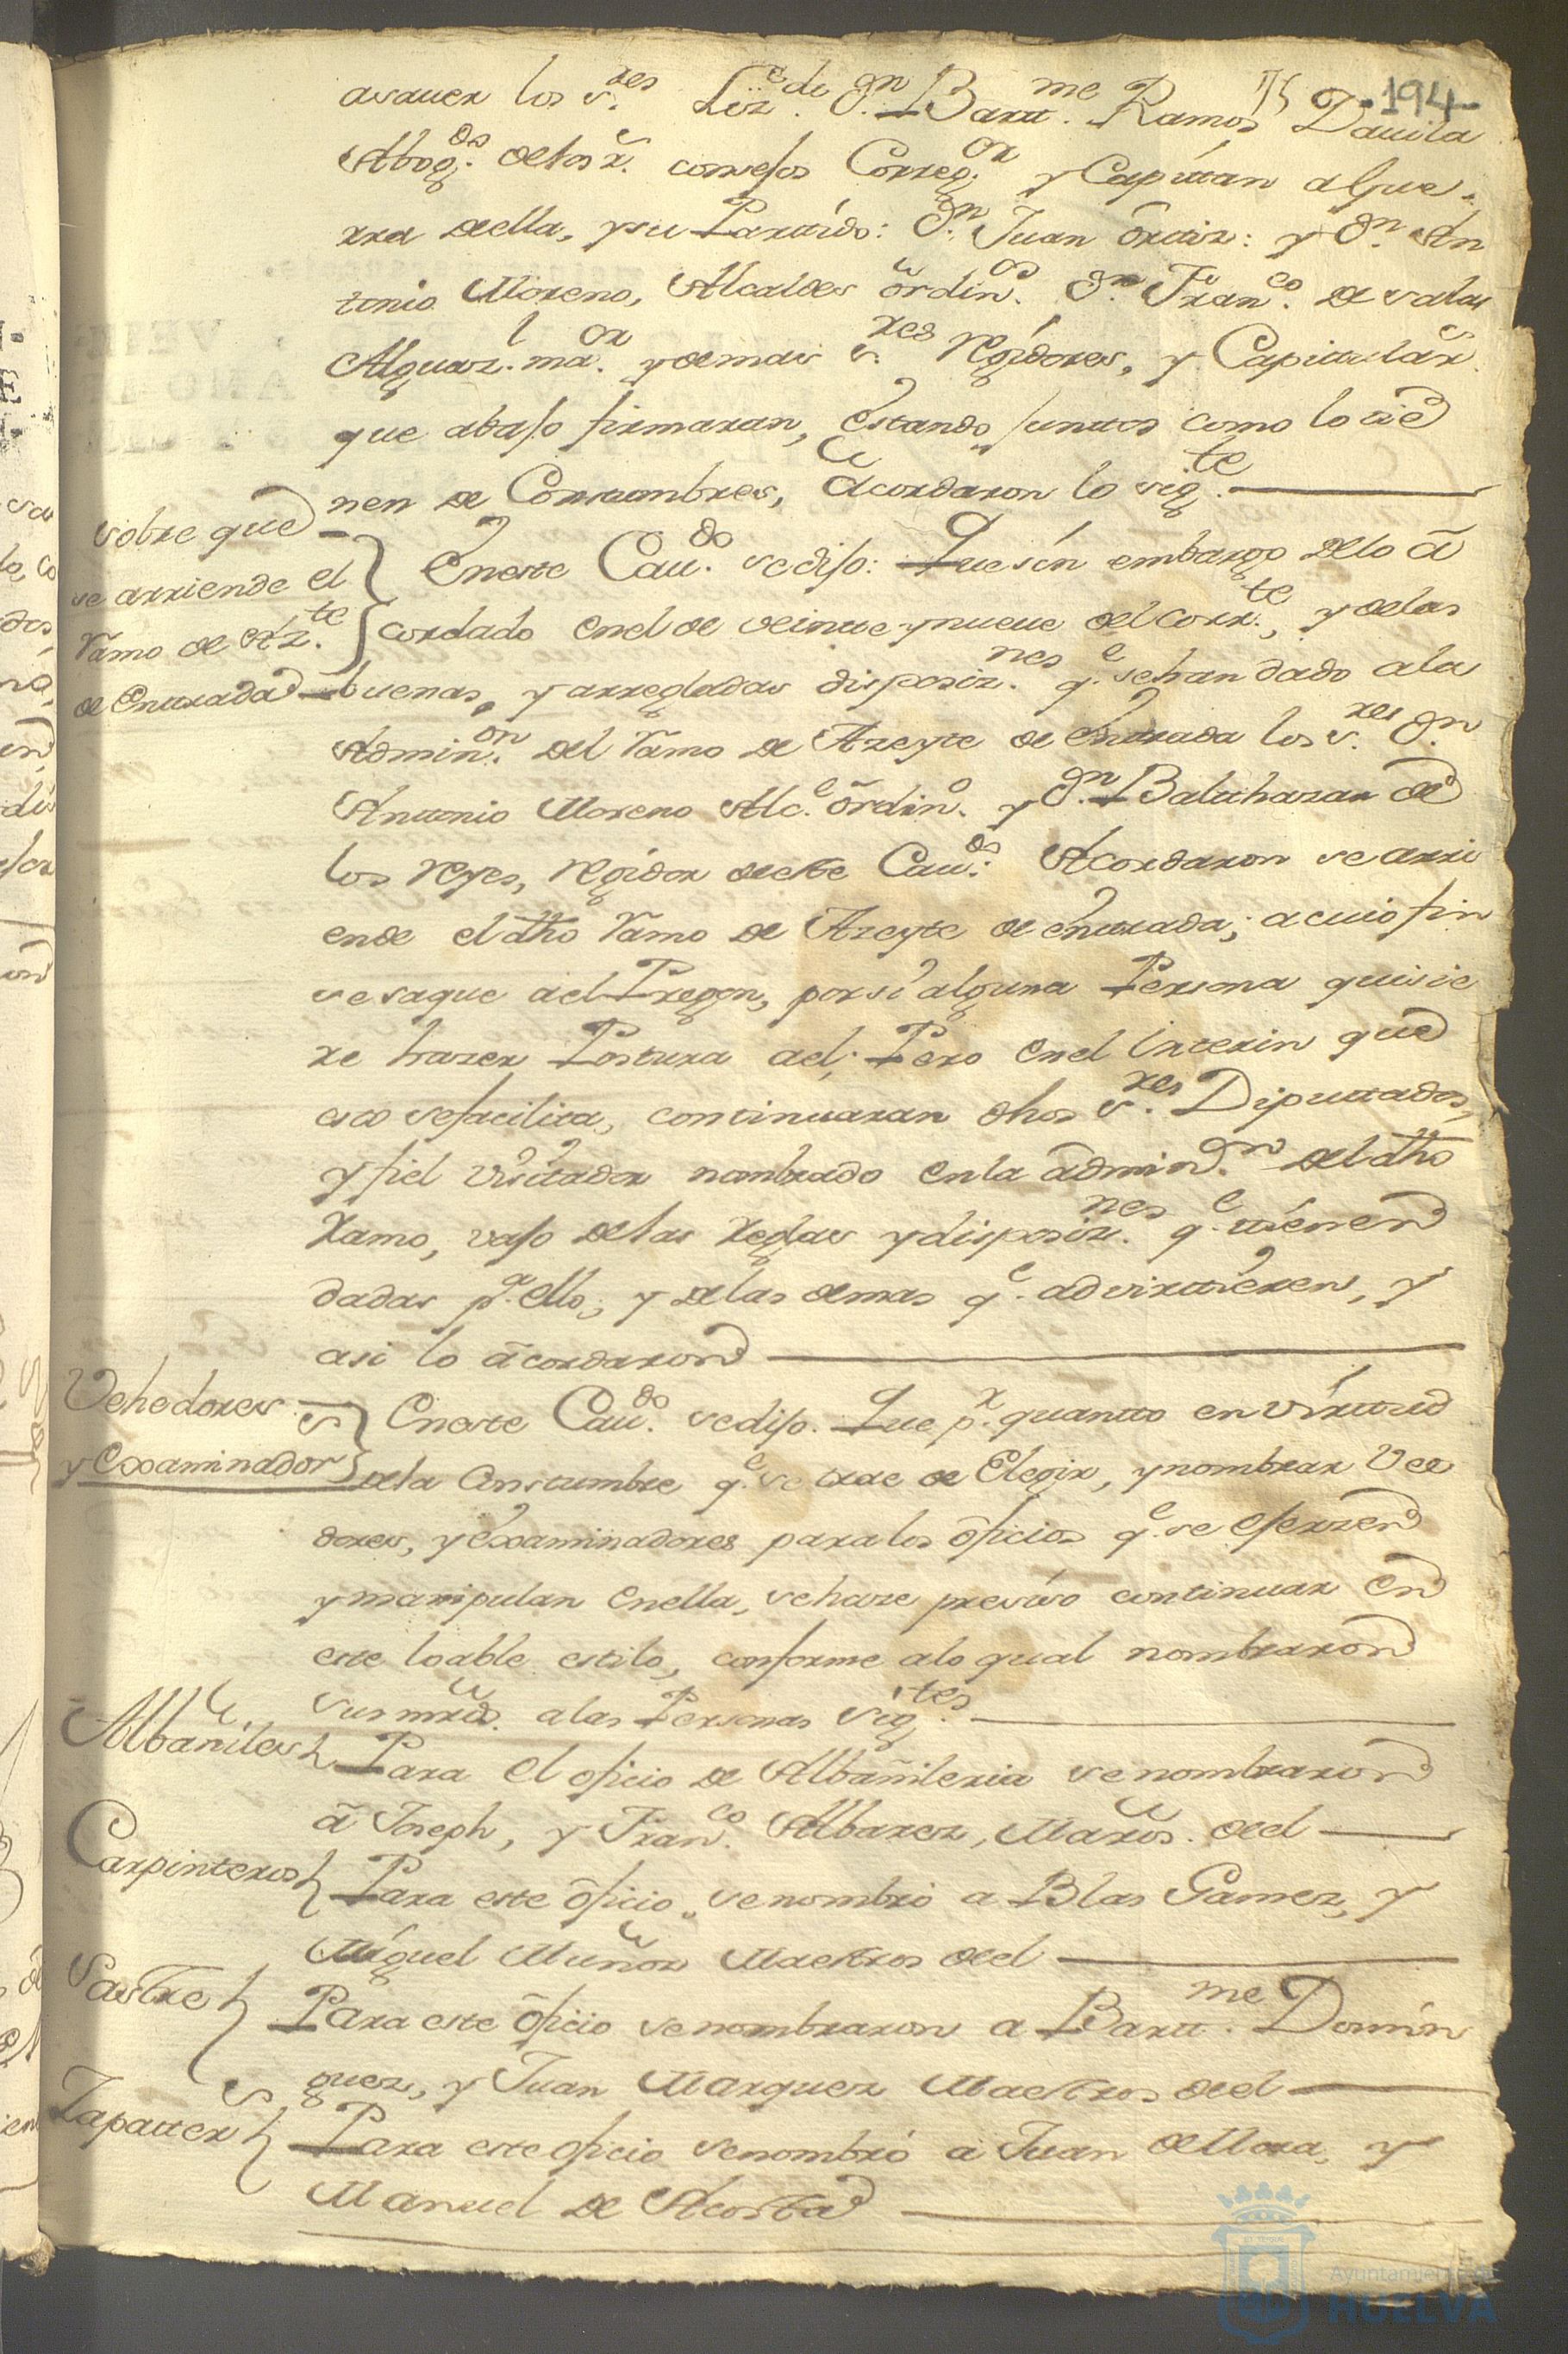 194
asauer los s.res Liz.do d.n Bart.me Ramos Dauila
Abog.do delos R.s consejos Correg.or y Capitan a Gue-
rra della, y su Partido: d.n Juan Ortiz: y d.n An
tonio Moreno, Alcaldes ordin.os d.n Fran.co de salas
Alguaz.l ma.or y demas s.res regidores, y Capitular.s
que abajo firmaran, estando juntos como lo tie
nen de Constumbres, acordaron lo sig.te
sobre que
se arriende el
Ramo de Az.te
de entrada
Eneste Cau.do se dijo: Que sin embargo delo a
cordado enel de veinte y nueue del corr.te, y delas
buenas, y arregladas disposiz.nes q.e se han dado ala
Admin.on del Ramo de Azeyte de entrada los s.res d.n
Antonio Moreno Alc.e ordin.o y d.n Balthazar de
los reyes, regidor deste Cau.do Acordaron se arri
ende el dho Ramo de Azeyte de entrada; a cuio fin
se saque al Pregon, por si alguna Persona quisie
re hazer Postura ael; Pero enel interin que
esto se facilita, continuaran dhos s.res Diputtados,
y fiel visitador nombrado enla admin.on del dho
Ramo, vajo delas Reglas y disposiz.nes q.e tienen
dadas p.a ello; y delas demas q.e advirtieren, y
asi lo acordaron
Vehedores
y Examinador.s
Eneste Cau.do se dijo. Que p.r quantto en virtud
dela Constumbre q.e se trae de Elegir, y nombrar Vee
dores, y Examinadores para los oficios q.e se ejerzen
y manipulan enella, se haze preciso continuar en
este loable estilo, conforme alo qual nombraron
sus mrds. alas Personas sig.tes
Albañiles
Para el oficio de Albañileria se nombraron
a Joseph, y Fran.co Albarez, Maros. del
Carpinteros
Para este oficio se nombró a Blas Gamez, y
Miguel Muñoz Maestros del
Sastre
Para este oficio se nombraron a Bart.me Domin
guez, y Juan Marquez Maestros del
Zapatter.s
Para este oficio se nombró a Juan de Mora, y
Manuel de Acosta
Ayuntamiento
HUELVA